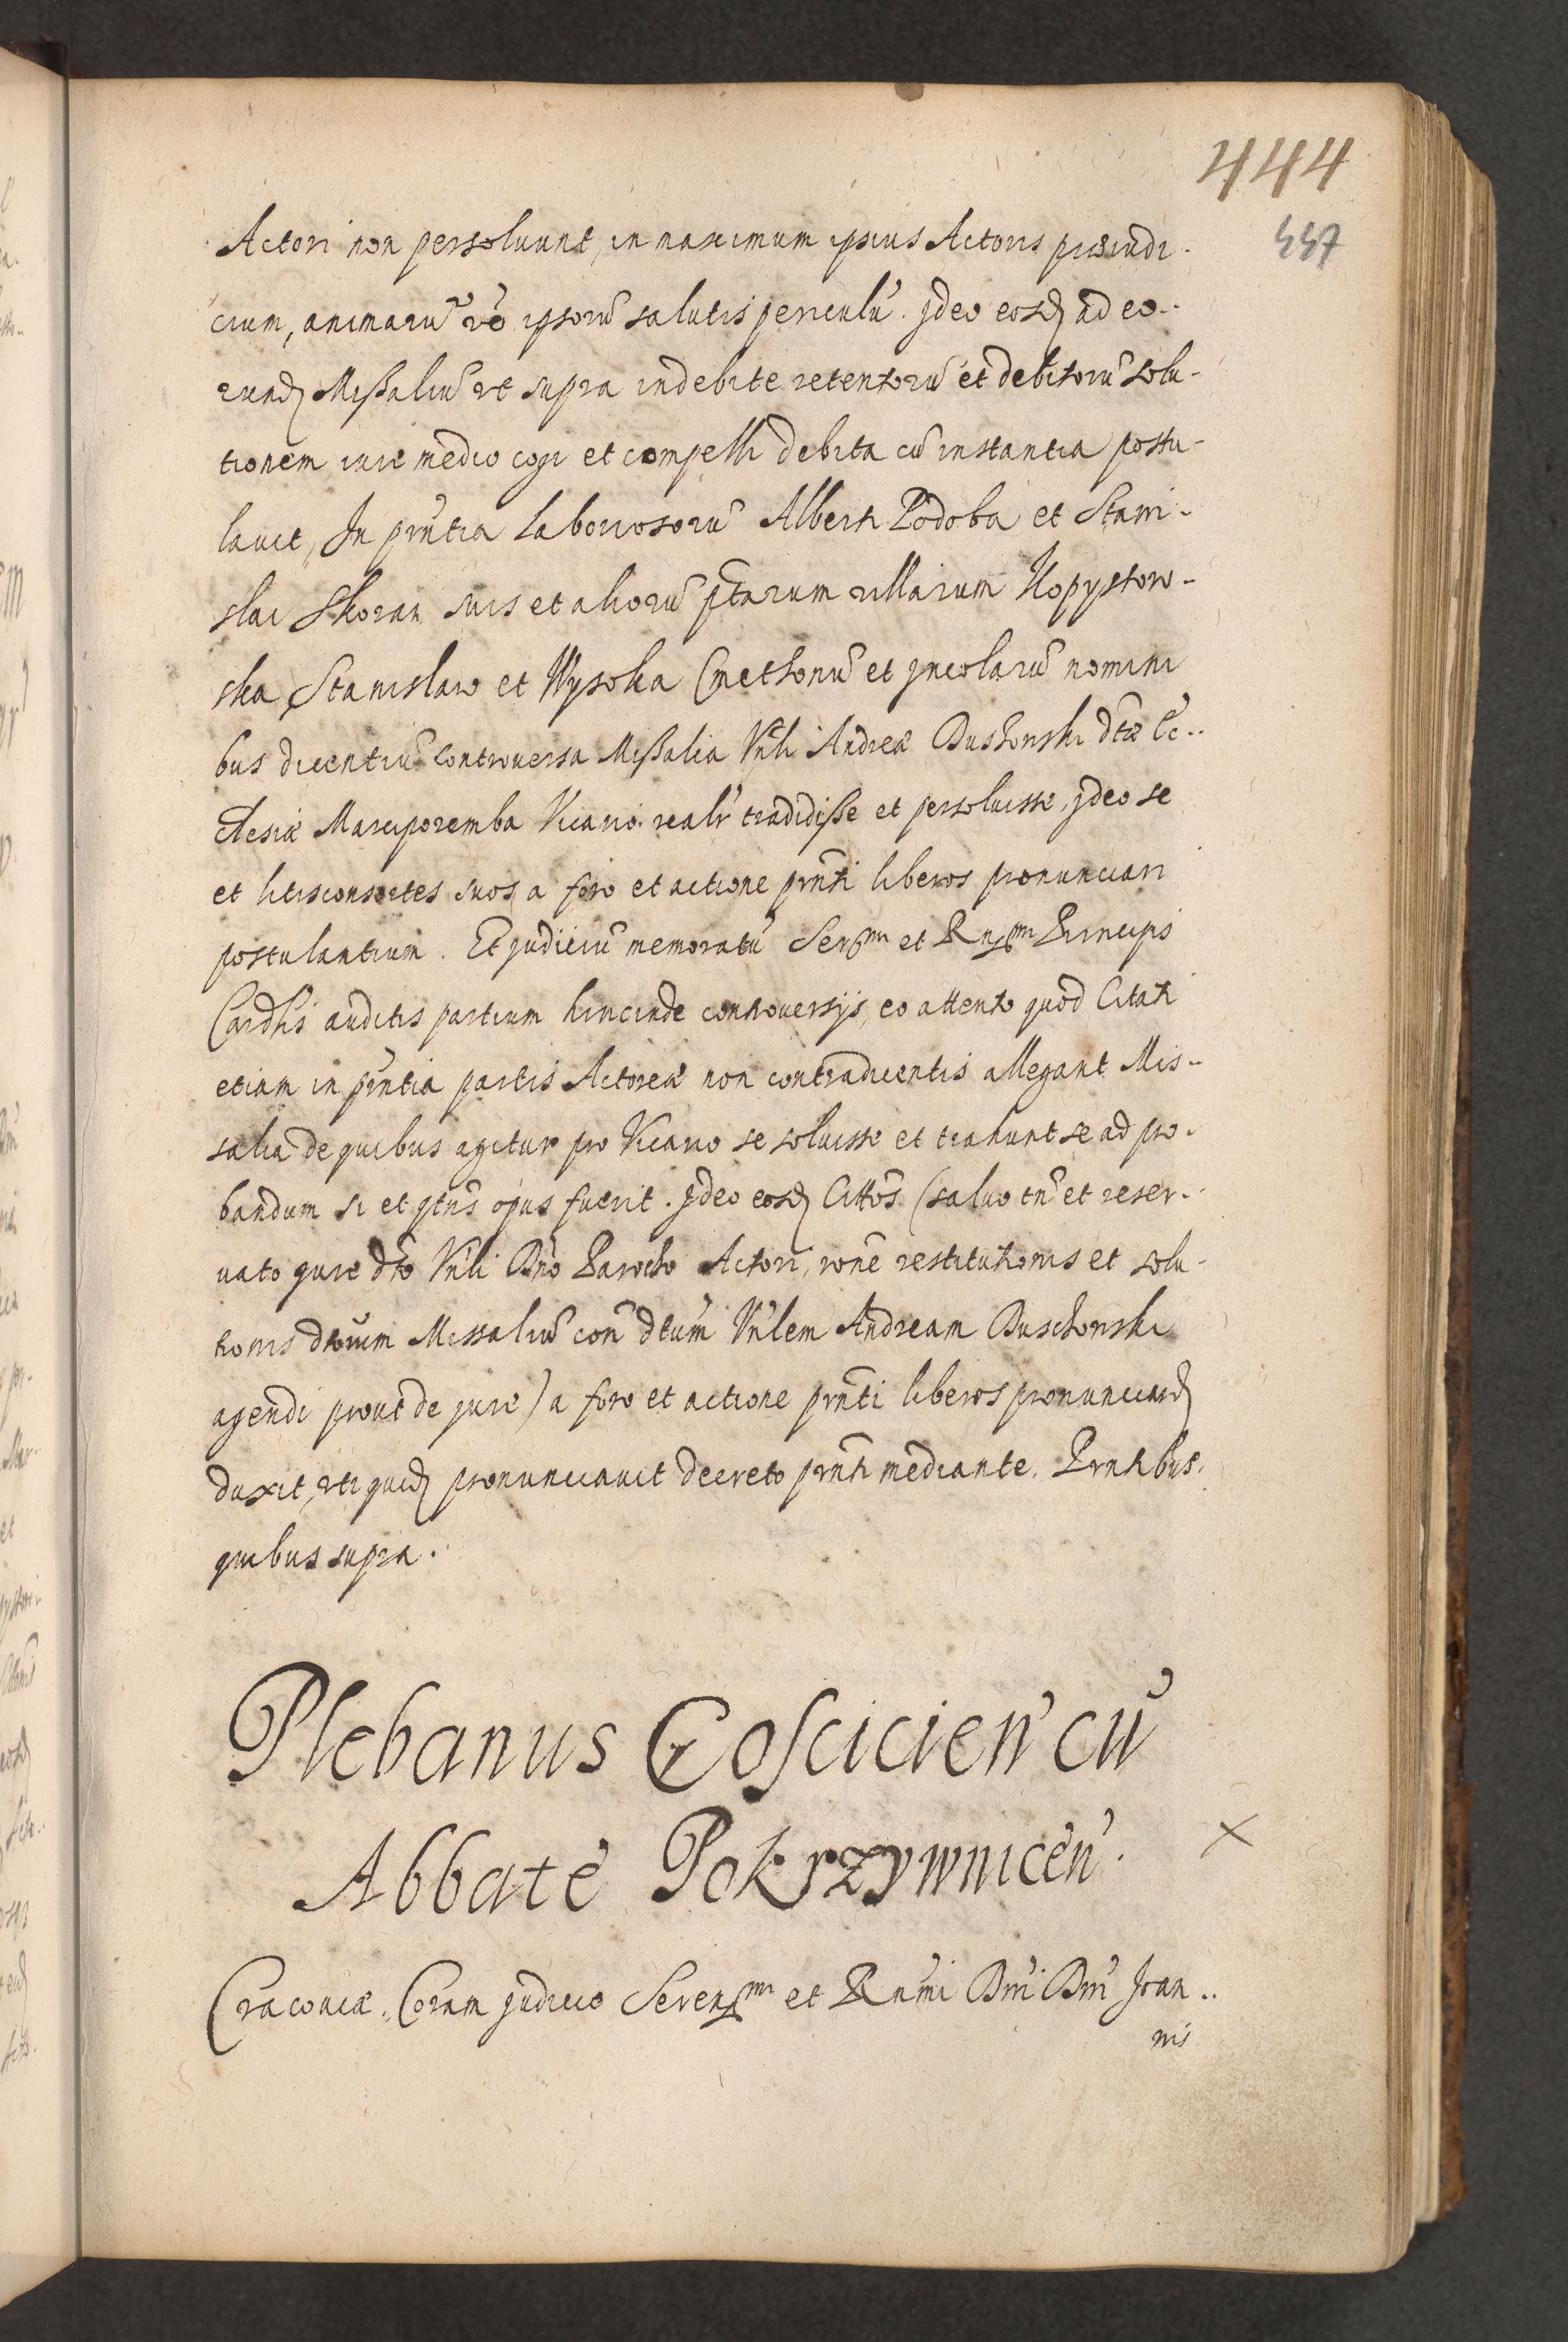 444
447
Actori non persoluunt, in maximum ipsius Actoris præiudi-
cium, animarũ vẽ ipsorũ salutis periculũ. Jdeo eosd ad eo-
rund Missaliũ vt supra indebite retentorũ et debitorũ solu-
tionem iure medio cogi et compelli debita cũ instantia postu-
lauit, In pñtia Laboriosorũ Alberti Podoba et Stani-
slai Skoran suis et aliorũ p̃tarum villarum Kopystow-
ska Stanislaw et Wysoka Cmethonũ et Jncolarũ nomini
bus dicentiũ controuersa Missalia Vñli Andreæ Duskonski dtæ Ec-
clesiæ Marciporemba Vicario realr̃ tradidisse et persoluisse, jdeo se
et litisconsortes suos a foro et actione pñti liberos pronunciari
postulantium. Et Judiciũ memoratũ Serẽmi et Rndmi Principis
Cardlis auditis partium hincinde controuersijs, eo attento quod Citati
etiam in pñtia partis Actoreæ non contradicentis allegant Mis-
salia de quibus agitur pro Vicario se soluisse et trahunt se ad pro-
bandum si et qtñs opus fuerit. Jdeo eosd Cittos (saluo tñ et reser-
uato jure dto Vñli Dño Parocho Actori, rone restitutionis et solu-
tionis dtorum Missaliũ con dtum Vñlem Andream Duschonski
agendi prout de jure) a foro et actione pñti liberos pronunciand
duxit, vti quid pronunciauit decreto pñti mediante. Pñtibus
quibus supra.
Plebanus Goscicień cũ
Abbate Pokrzywniceń.
×
Cracouiæ. Coram judicio Serenmi et Rñdmi Dñi Dñi Joan-
nis